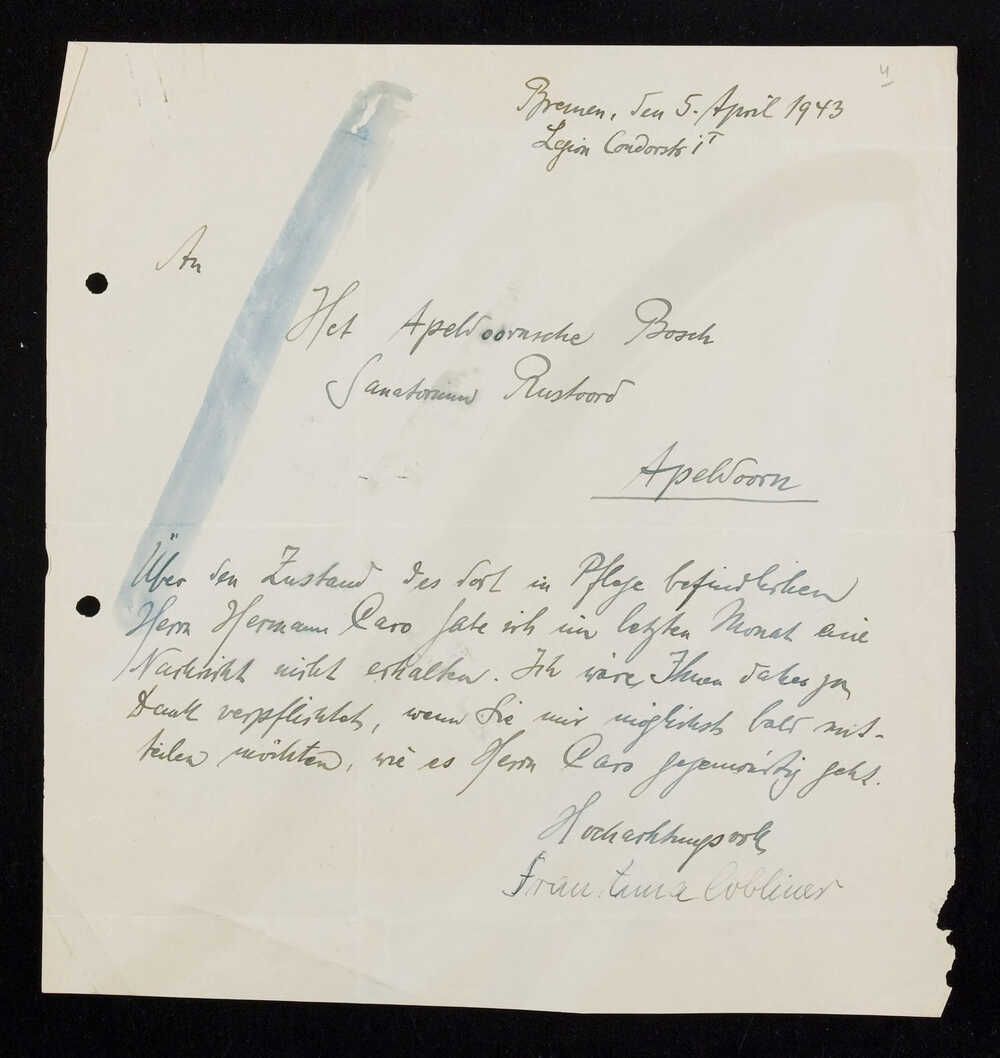 4
Bremen, den 5. April 1943
Legion Condorstr 1 I
An
Het Apeldoornsche Bosch
Sanatorium Rustoord
Apeldoorn
Über den Zustand des dort in Pflege befindlichen
Herrn Hermann Caro habe ich im letzten Monat eine
Nachricht nicht erhalten. Ich wäre Ihnen daher zu
Dank verpflichtet, wenn Sie mir möglichst bald mit-
teilen möchten, wie es Herrn Caro gegenwärtig geht.
Hochachtungsvoll
Frau Anna Cobliner